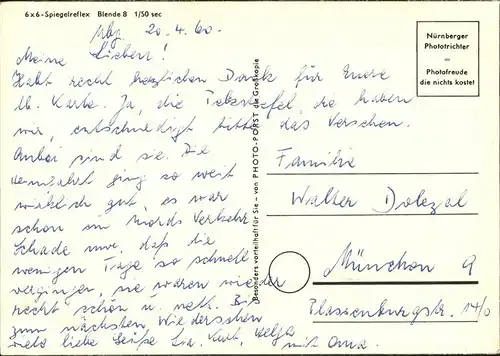 6x6-Spiegelreflex Blende 8 1/50 sec
Nbg. 20.4.60.
Meine Lieben!
Habt recht herzlichen Dank für Eure
lb. Karte. Ja, die
wir, entschuldigt bitte das Versehen.
Anbei sind sie. Die
Heimfahrt ging so weit
wirklich gut, es war
schon ein Mords Verkehr.
Schade nur, daß die
wenigen Tage so schnell
vergingen, sie waren wieder
recht schön u. nett. Bis
zum nächsten Wiedersehen
viele liebe Grüße Kurt, Helga
mit Oma.
Besonders vorteilhaft für Sie – von PHOTO-PORST die Großkopie
Nürnberger
Phototrichter
=
Photofreude
die nichts kostet
Familie
Walter Dolezal
München 9
Plassenburgstr. 14/0